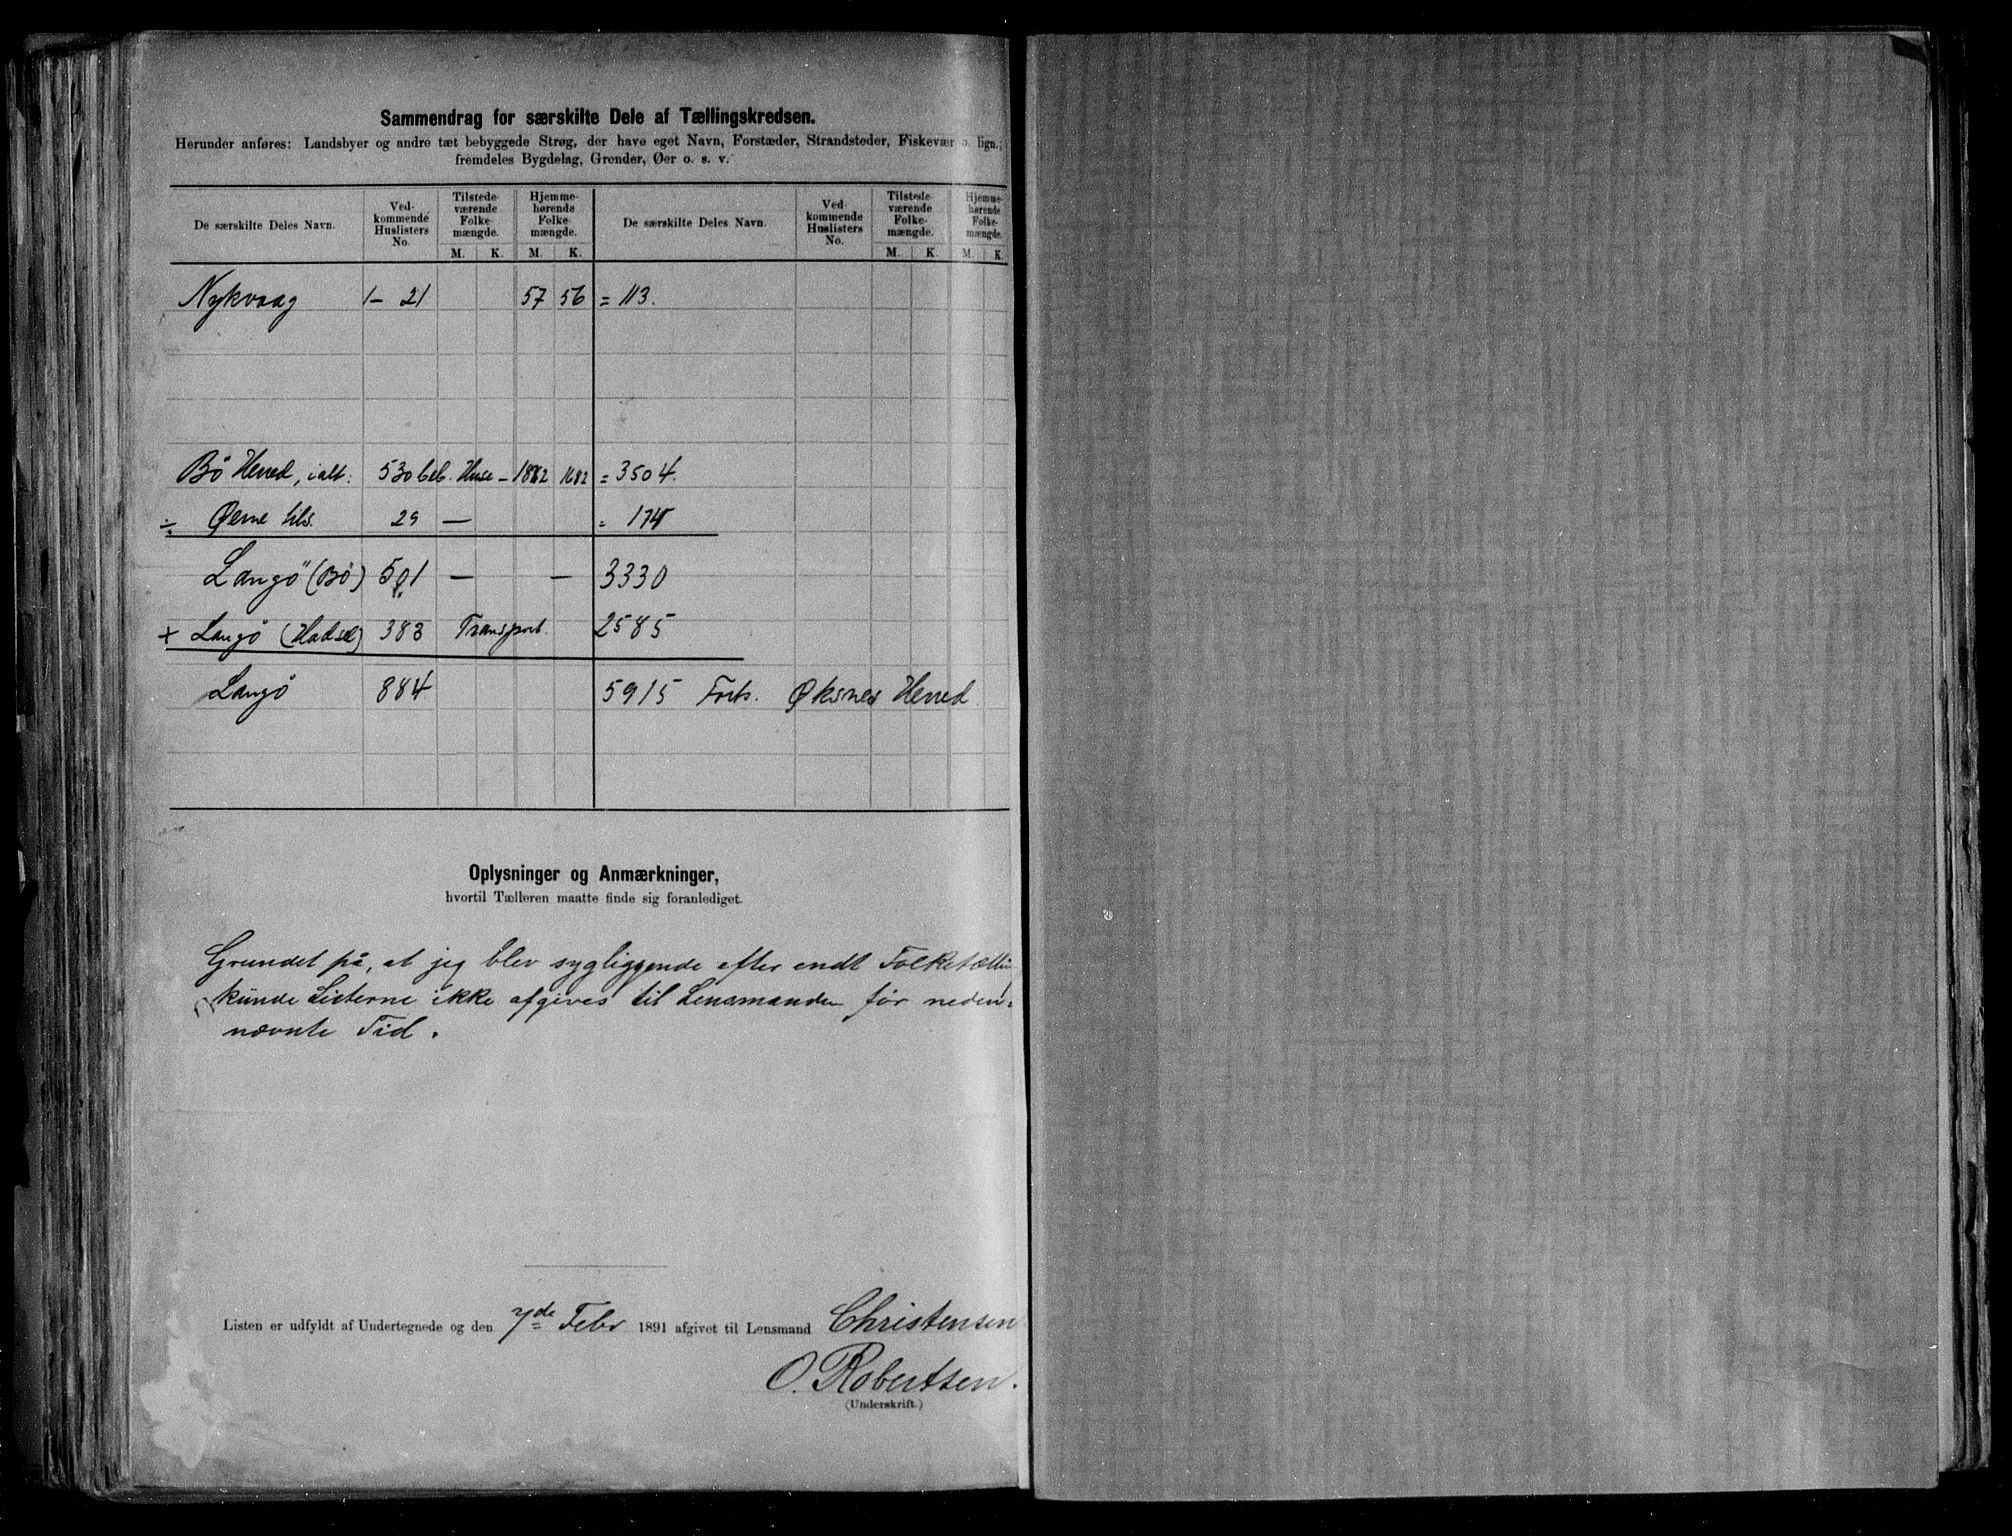 Sammendrag for særskilte Dele af Tællingskredsen.
Herunder anføres: Landsbyer og andre tæt bebyggede Strøg, der have eget Navn, Forstæder, Strandsteder, Fiskevær o. lign.;
fremdeles Bygdelag, Grender, Øer o. s. v.
De særskilte Deles Navn. Ved-kommende Huslisters No. Tilstede-værende Folke-mængde. Hjemme-hørende Folke-mængde. De særskilte Deles Navn. Ved-kommende Huslisters No. Tilstede-værende Folke-mængde. Hjemme-hørende Folke-mængde.
M. K. M. K. M. K. M. K.
Nykvaag 1 – 21 57 56 = 113.
Bö Herred, ialt: 530 beb. Huse – 1822 1682 = 3504.
÷ Øerne tils. 29 — = 174
Langö (Bö) 501 — — 3330
+ Langö (Hadsel) 383 Transport. 2585
Langö 884 5915 Forts. Øksnes Herred
Oplysninger og Anmærkninger,
hvortil Tælleren maatte finde sig foranlediget.
Grundet på, at jeg blev sygliggende efter endt Folketælli
kunde Listerne ikke afgives til Lensmanden før neden-
nævnte Tid.
Listen er udfyldt af Undertegnede og den 7de Febr 1891 afgivet til Lensmand Christensen
O. Robertsen.
(Underskrift.)